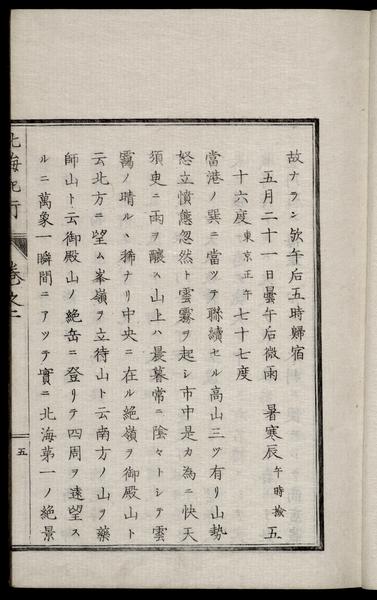 故ナラン欤午后五時歸宿
五月二十一日曇午后微雨　暑寒辰午時撿五
十六度東京正午七十七度
當港ノ巽ニ當ツテ聯續セル高山三ツ有リ山勢
怒立憤態忽然ト雲霧ヲ起シ市中是カ為ニ快天
須臾ニ雨ヲ醸ス山上ハ晨暮常ニ陰々トシテ雲
靄ノ晴ルヽ稀ナリ中央ニ在ル絶嶺ヲ御殿山ト
云北方ニ望ム峯嶺ヲ立待山ト云南方ノ山ヲ藥
師山ト云御殿山ノ絶岳ニ登リテ四周ヲ遠望ス
ルニ萬象一瞬間ニアツテ實ニ北海第一ノ絶景
北海紀行　卷之二　五